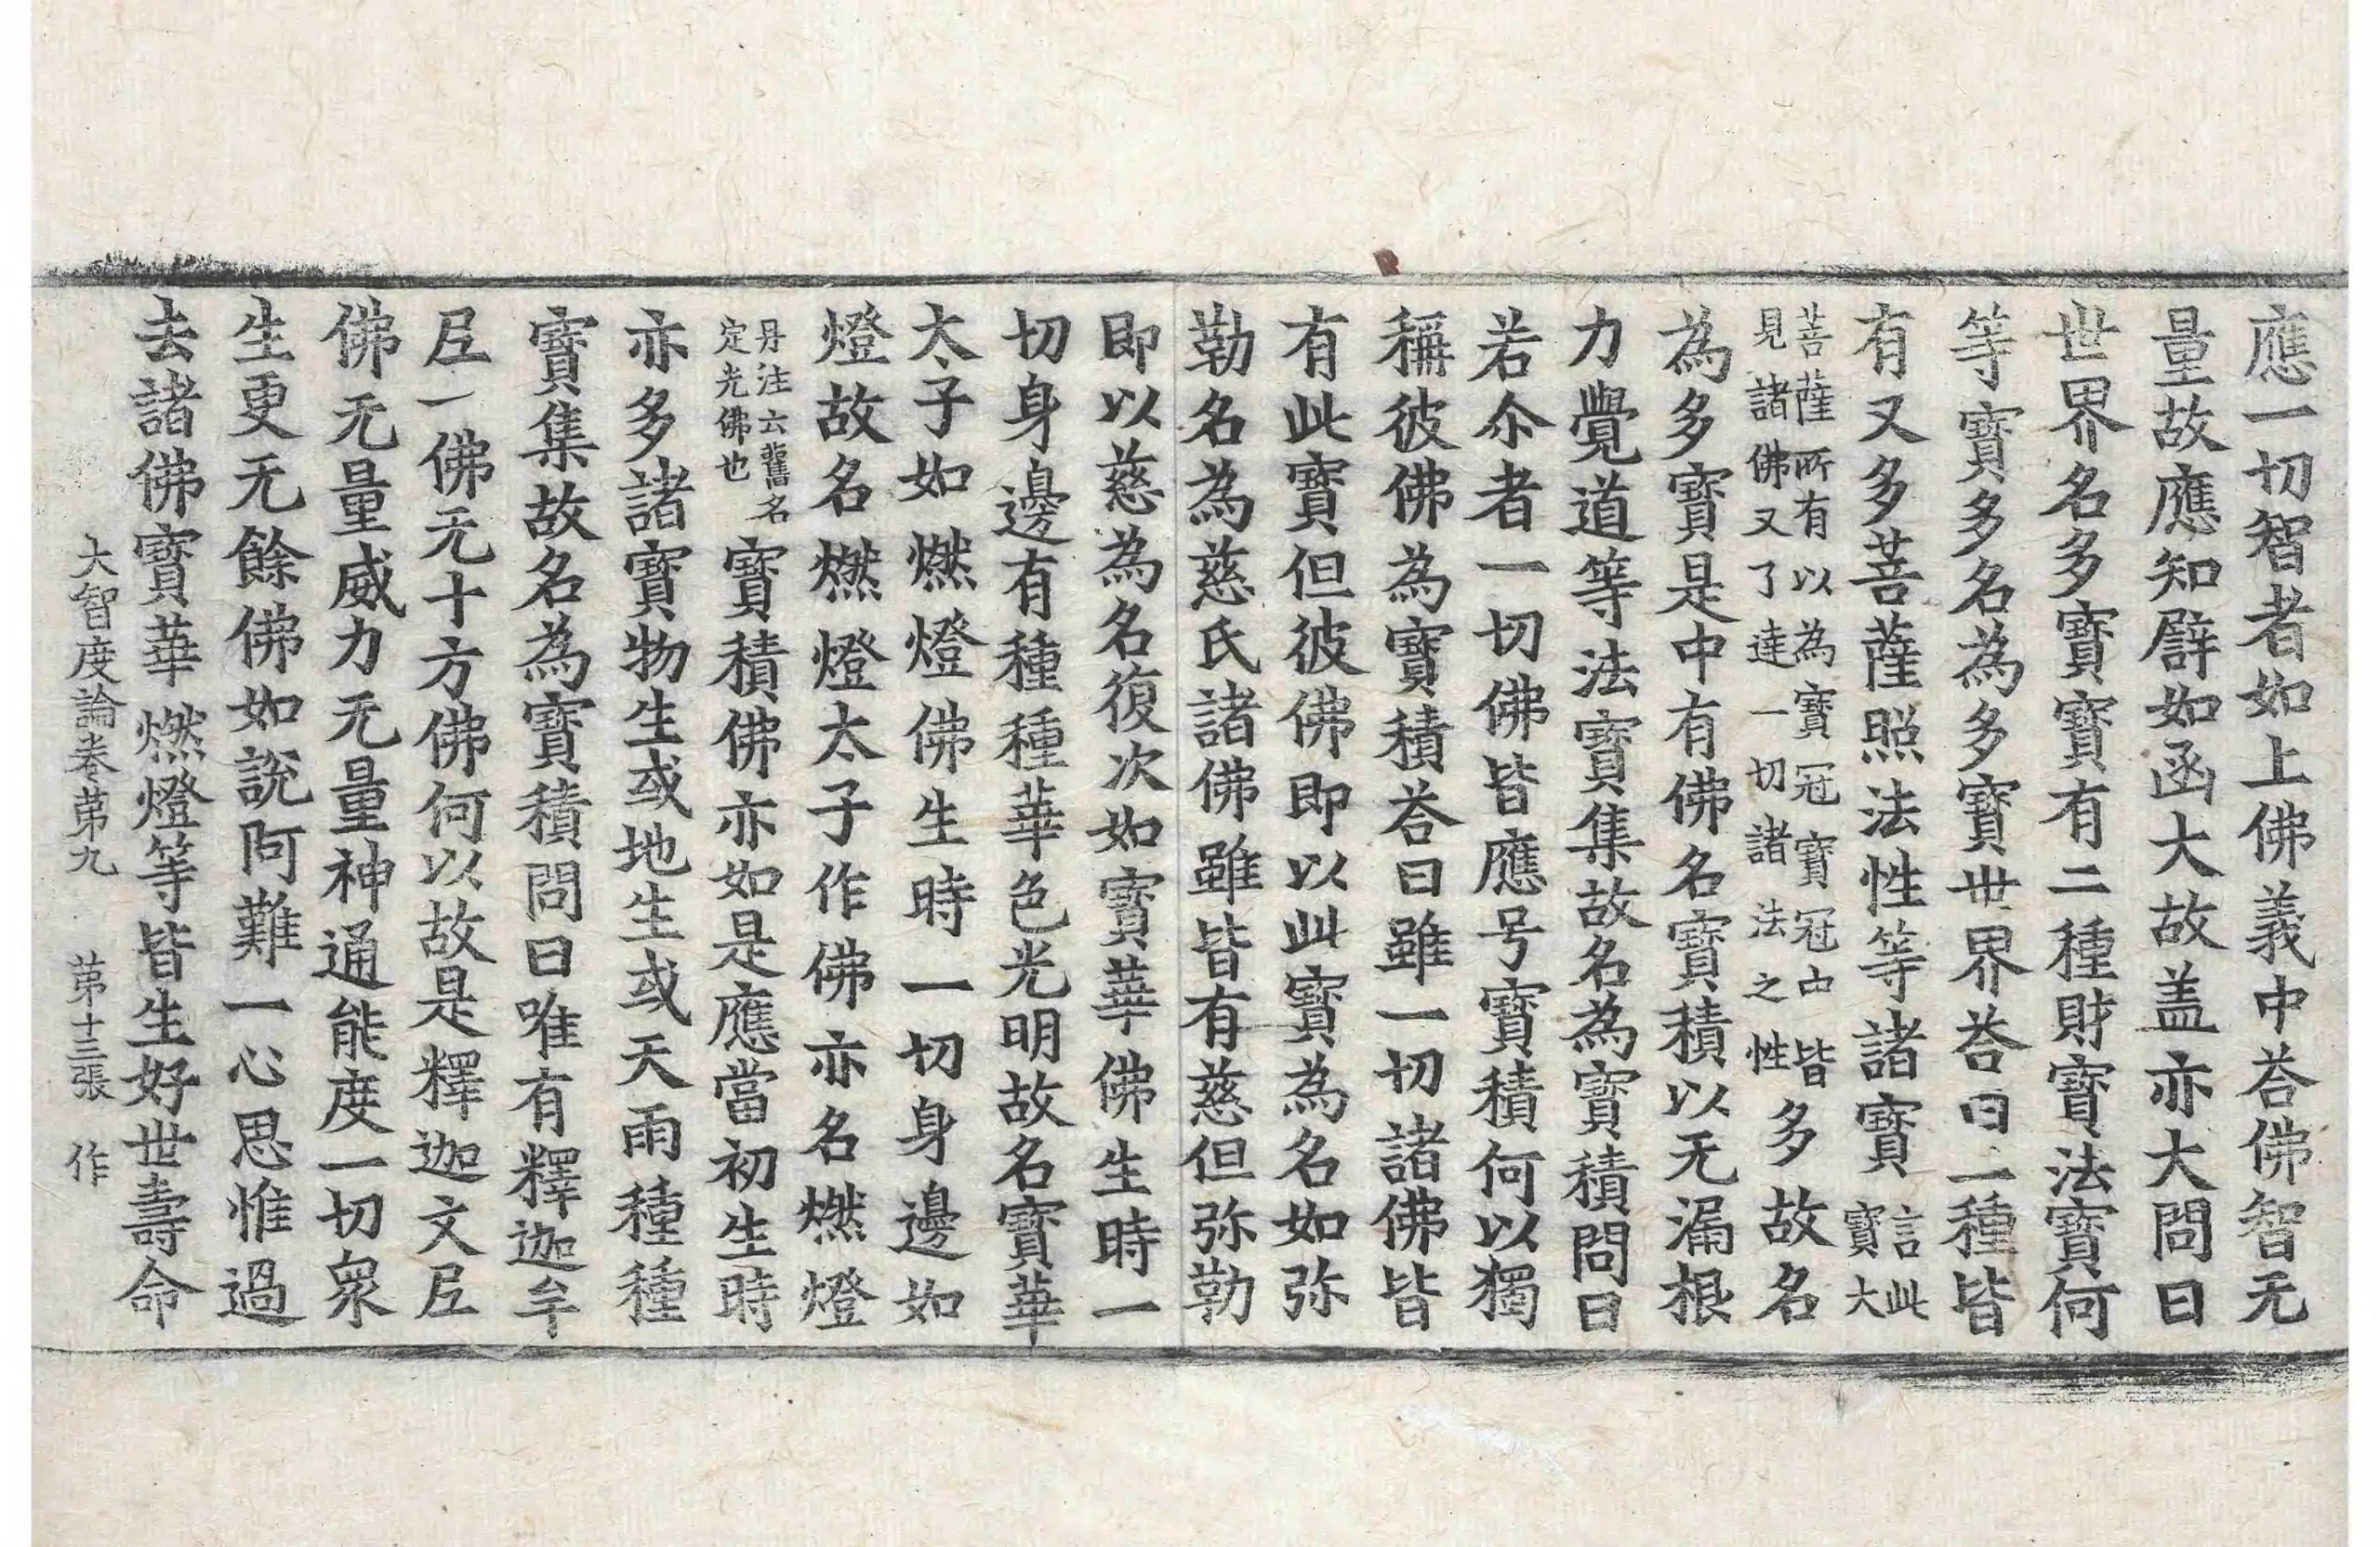 應一切智者如上佛義中荅佛智无
量故應知譬如函大故盖亦大問曰
世界名多寶寶有二種財寶法寶何
等寶多名為多寶世界荅曰二種皆
有又多菩薩照法性等諸寶言此寶大
菩薩所有以為寶冠寶冠中皆見諸佛又了達一切諸法之性多故名
為多寶是中有佛名寶積以无漏根
力覺道等法寶集故名為寶積問曰
若尒者一切佛皆應号寶積何以獨
稱彼佛為寶積荅曰雖一切諸佛皆
有此寶但彼佛即以此寶為名如弥
勒名為慈氏諸佛雖皆有慈但弥勒
即以慈為名復次如寶華佛生時一
切身邊有種種華色光明故名寶華
太子如燃燈佛生時一切身邊如
燈故名燃燈太子作佛亦名燃燈
丹注云舊名定光佛也寶積佛亦如是應當初生時
亦多諸寶物生或地生或天雨種種
寶集故名為寶積問曰唯有釋迦牟
𡰱一佛无十方佛何以故是釋迦文𡰱
佛无量威力无量神通能度一切衆
生更无餘佛如說阿難一心思惟過
去諸佛寶華燃燈等皆生好世壽命
大智度論卷第九 第十三張 作